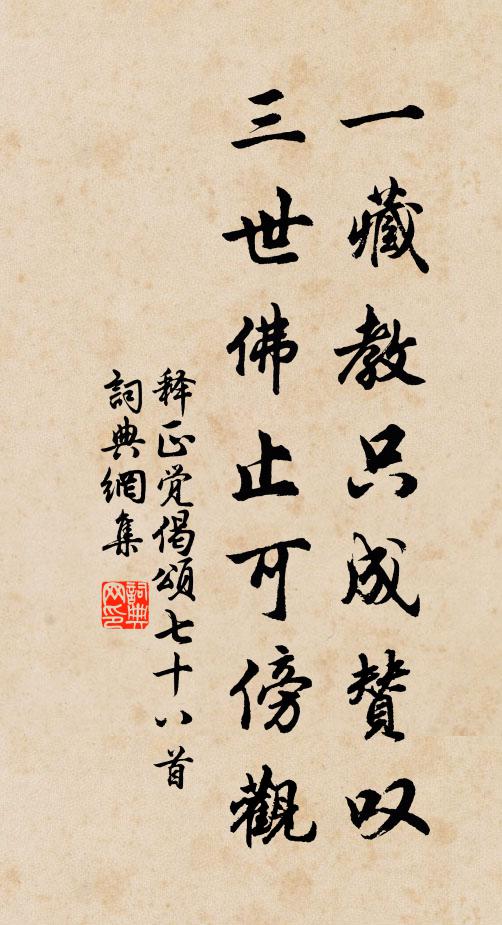 一藏教只成赞叹
三世佛止可傍觀
释正觉偈頌七十八首
詞典網集
詞典网印